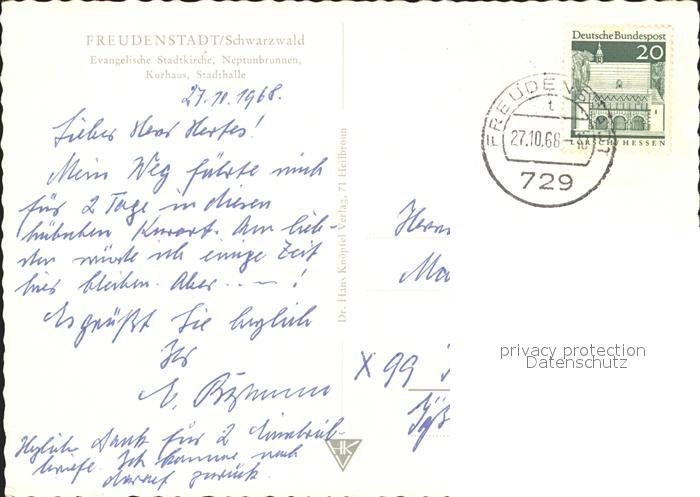 FREUDENSTADT/Schwarzwald
Evangelische Stadtkirche, Neptunbrunnen,
Kurhaus, Stadthalle
27.10.1968.
Lieber Herr Hertes!
Mein Weg führte mich
für 2 Tage in diesen
hübschen Kurort. Am lieb-
sten würde ich einige Zeit
hier bleiben. Aber . . . – !
Es grüßt Sie herzlich
Ihr
Herzlich Dank für 2
briefe. Ich komme noch
darauf zurück.
Dr. Hans Knöpfel Verlag, 71 Heilbronn
HK
Deutsche Bundespost
20
LORSCH/HESSEN
27.10.68
729
Herrn
X 99
privacy protection
Datenschutz